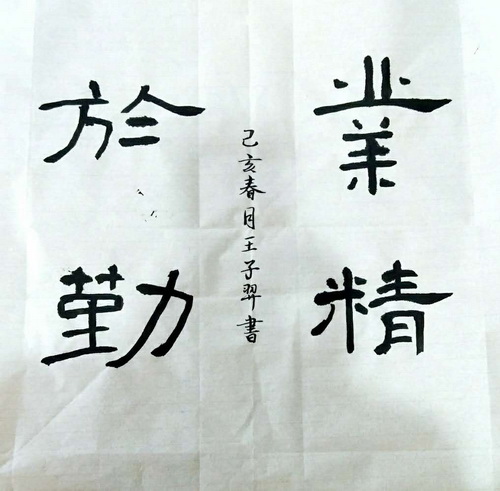 業精
於勤
己亥春月王子羿書